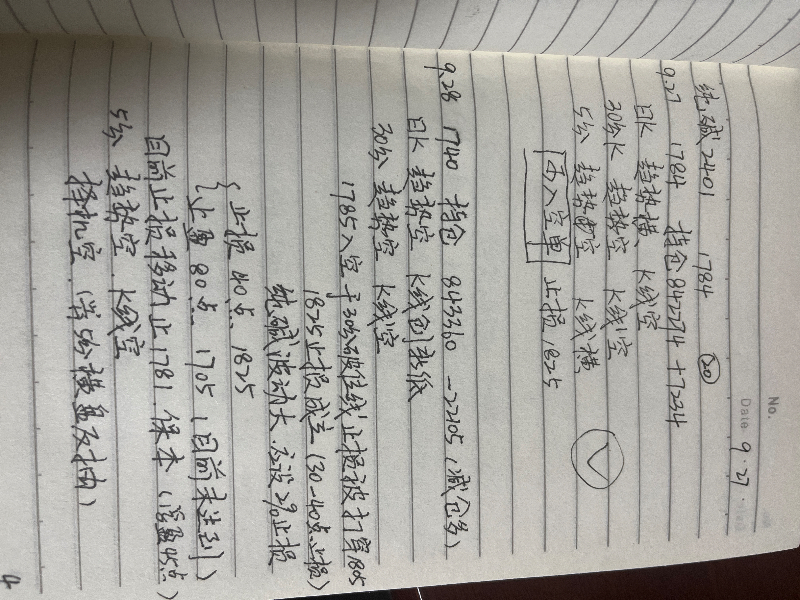 No.
Date 9.27
纯碱2401 1784 (20)
9.27 1784 持仓842274 +7234
日K 趋势横、K线空
30分K 趋势空 K线空
5分 趋势空 K线横
买入空单 止损1825
9.28 1740 持仓 843360 -22105 (减仓多)
日K 趋势空 K线创新低
30分 趋势空 K线空
1785入空于30分破位线,止损被打穿1805
1825止损成立 (30-40点止损)
纯碱波动大、应设2%止损
{止损40点 1825
止盈80点 1705 (目前未达到)
目前止损移动止1781 保本 (浮盈45点)
5分 趋势空 K线空
择机空 (等5分横盘反抽)
4